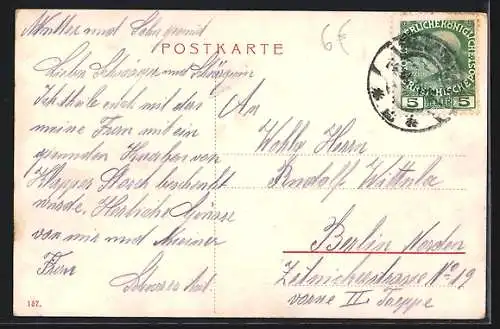 Mutter und Sohn gesund
POSTKARTE
6€
Lieber Schwager und Schwägerin
Ich theile euch mit das
meine Frau mit ein
gesunden Knaben von
Klapper Storch beschenkt
wurde. Herzliche Grüsse
von mir und meiner
Frau
An
Wohlg Herrn
Rudolf Wittula
Berlin Norden
No 19
vorne II Treppe
5 5
157.